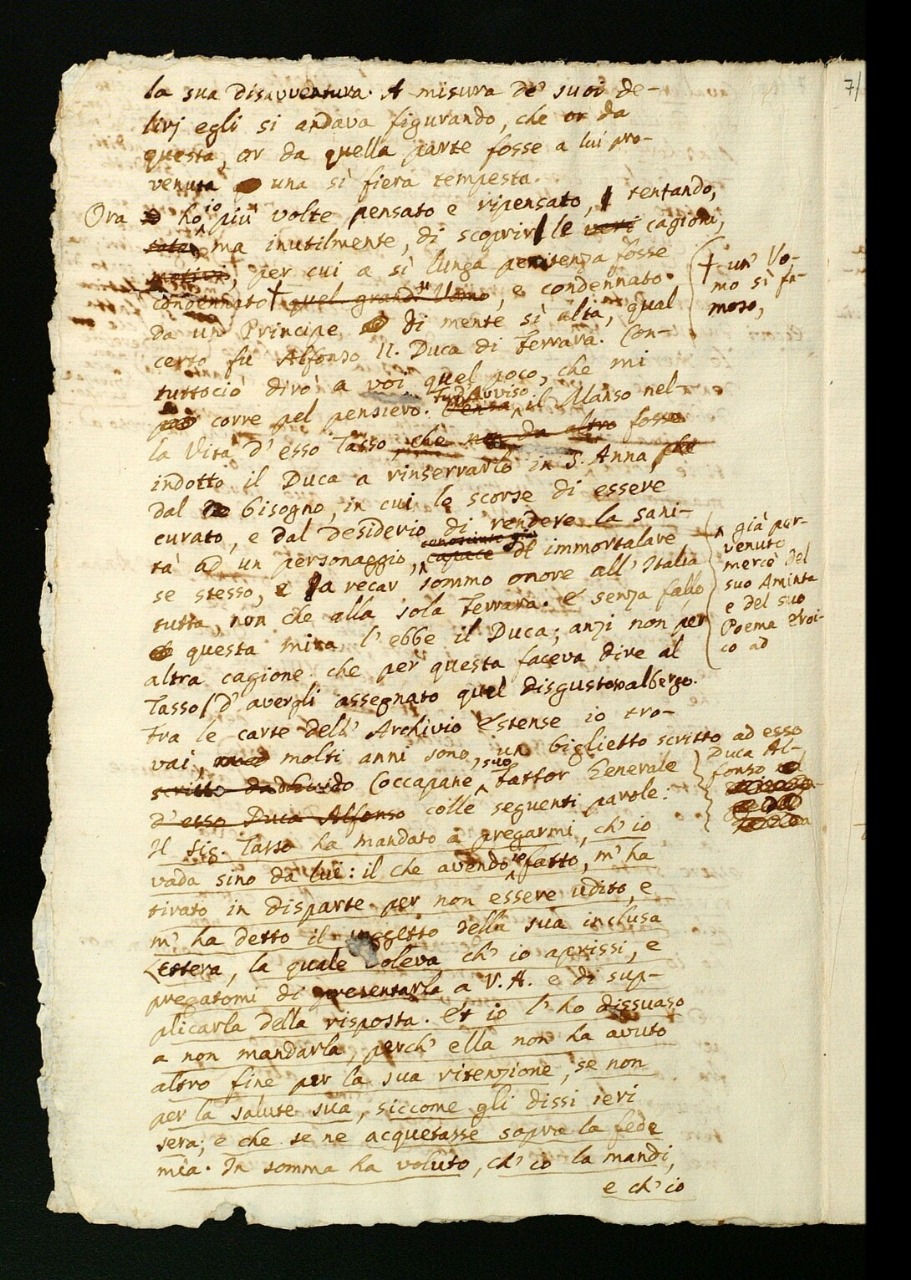 la sua disavventura. A misura de' suoi de-
lirj egli si andava figurando, che or da
questa, or da quella parte fosse a lui pro-
venuta una sì fiera tempesta.
Ora ho io più volte pensato e ripensato, tentando,
ma inutilmente, di scoprir le veri cagioni,
motivo, per cui a sì lunga penitenza fosse
condennato † quel grand' Uomo, e condennato
da un Principe di mente sì alta, qual
certo fu Alfonso II. Duca di Ferrara. Con-
tuttociò dirò a voi quel poco, che mi
corre pel pensiero. Fu d'Avviso il Manso nel-
la Vita d'esso Tasso, che da altro fosse
indotto il Duca a rinserrarlo in S. Anna che
dal bisogno, in cui lo scorse di essere
curato, e dal desiderio di rendere la sani-
tà ad un personaggio, capace di immortalare
se stesso, e a recar sommo onore all'Italia
tutta, non che alla sola Ferrara. E senza fallo
questa mira l'ebbe il Duca; anzi non per
altra cagione che per questa faceva dire al
Tasso d'avergli assegnato quel disgustoso albergo.
Tra le carte dell'Archivio Estense io tro-
vai, molti anni sono, un biglietto scritto ad esso
scritto da Guido Coccapane suo Fattor Generale
d'esso Duca Alfonso colle seguenti parole:
Il Sig. Tasso ha mandato a pregarmi, ch'io
vada sino da lui: il che avendo io fatto, m'ha
tirato in disparte per non essere udito, e
m'ha detto il soggetto della sua inclusa
Lettera, la quale voleva ch'io aprissi, e
pregatomi di presentarla a V. A. e di sup-
plicarla della risposta. Et io l'ho dissuaso
a non mandarla, perch'ella non ha avuto
altro fine per la sua ritenzione, se non
per la salute sua, siccome gli dissi ieri
sera; e che se ne acquetasse sopra la fede
mia. In somma ha voluto, ch'io la mandi,
e ch'io
† un' Uo-
mo sì fa-
moso,
già per-
venuto
mercè del
suo Aminta
e del suo
Poema Eroi-
co ad
Duca Al-
fonso
7